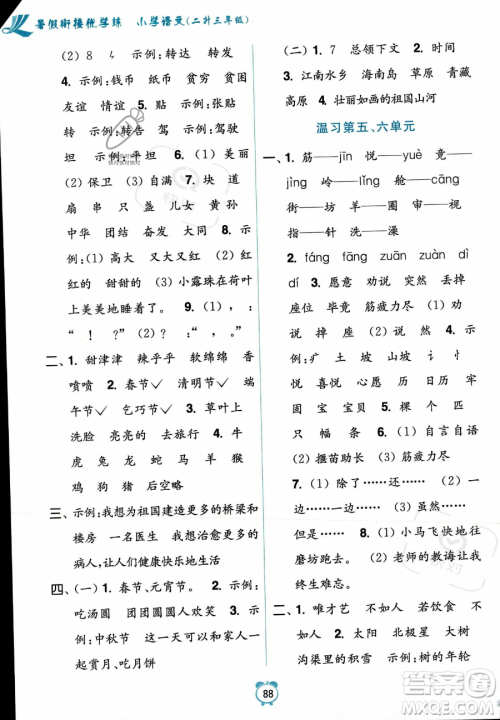 暑假衔接优学练 小学语文(二升三年级)
(2) 8 4 示例:转达 转
发 5. 示例:钱币 纸币 贫穷
贫苦 友情 友谊 示例:张贴
转 示例:转告 驾 示例:驾驶
坦 示例:平坦 6.(1)美丽
(2)保卫 (3)自豪 7. 块 道
扇 串 只 盏 儿女 黄 孙
中华 团结 奋发 大同 8. 示
例:(1)高大 又大又红 (2)红
红的 甜甜的 小露珠在荷叶
上美美地睡着了。 9.(1),
:“ ! ?” (2)? :“ , 。”
二、1. 甜津津 辣乎乎 软绵绵 香
喷喷 2. 春节✓ 清明节✓ 端
午节✓ 乞巧节✓ 3. 草叶叶
洗脸 亮亮的 去上班 4. 牛
虎 兔 龙 蛇 马 羊 猴
鸡 狗 猪
三、示例:我想为祖国建造更多的桥梁和
楼房 一名医生 我想为更多的
病人,让人们健康快乐地生活
四、(一)1. 春节、元宵节。 2. 示例:
吃汤圆 团团圆圆人欢笑 3. 示
例:中秋节 这一天,我和家人一
起赏月、吃月饼
(二)1. 7 2. 总领下文 3.
4. 江南水乡 海南岛 草原 青藏
高原 5. 壮丽如画的祖国山河
温习第五、六单元
一、1. 筋——jīn 悦——yuè 竟——
jìng 岭——lǐng 舱——cāng
街——坊 羊——圈 洗——澡
2. fáng fāng zuān zuàn dí
dǐ 3. 愿意 劝说 突然 盖
座位 毕竟 筋疲力尽 4. 劝
动 劝说 掉 悼 5. 示
例:疒 土 山坡 山坡 讠 人
们 忄 悦耳 日 日历 日
月 贝 宝贝 6. 棵 个
只 幅 条 7.(1)自言自语
(2)揠苗助长 (3)筋疲力尽
8.(1)除了……还…… (2)一
边……一边…… (3)虽然……
但是…… 9.(1)小马飞快地往
磨坊跑去。 (2)老师的教诲让我
终生难忘。
二、(一)1. 唯才艺 不如人 若衣
服 若饮食 不如人 2.
(二)1. ③ 2. 太阳 北极星 大树
沟渠里的积雪 3. 示例:树的年轮
88